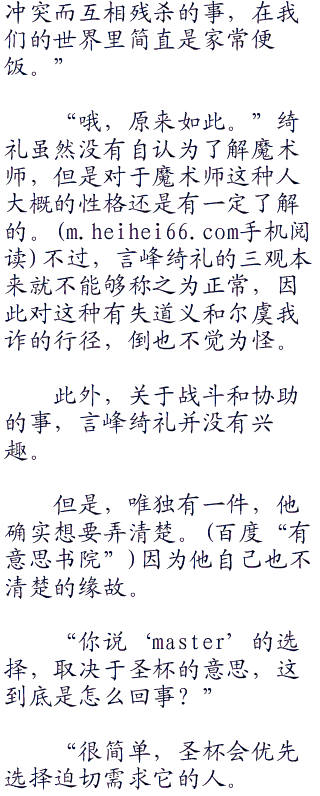 冲突而互相残杀的事，在我
们的世界里简直是家常便
饭。”
“哦，原来如此。”绮
礼虽然没有自认为了解魔术
师，但是对于魔术师这种人
大概的性格还是有一定了解
的。(m.heihei66.com手机阅
读)不过，言峰绮礼的三观本
来就不能够称之为正常，因
此对这种有失道义和尔虞我
诈的行径，倒也不觉为怪。
此外，关于战斗和协助
的事，言峰绮礼并没有兴
趣。
但是，唯独有一件，他
确实想要弄清楚。(百度“有
意思书院”)因为他自己也不
清楚的缘故。
“你说‘master’的选
择，取决于圣杯的意思，这
到底是怎么回事？”
“很简单，圣杯会优先
选择迫切需求它的人。